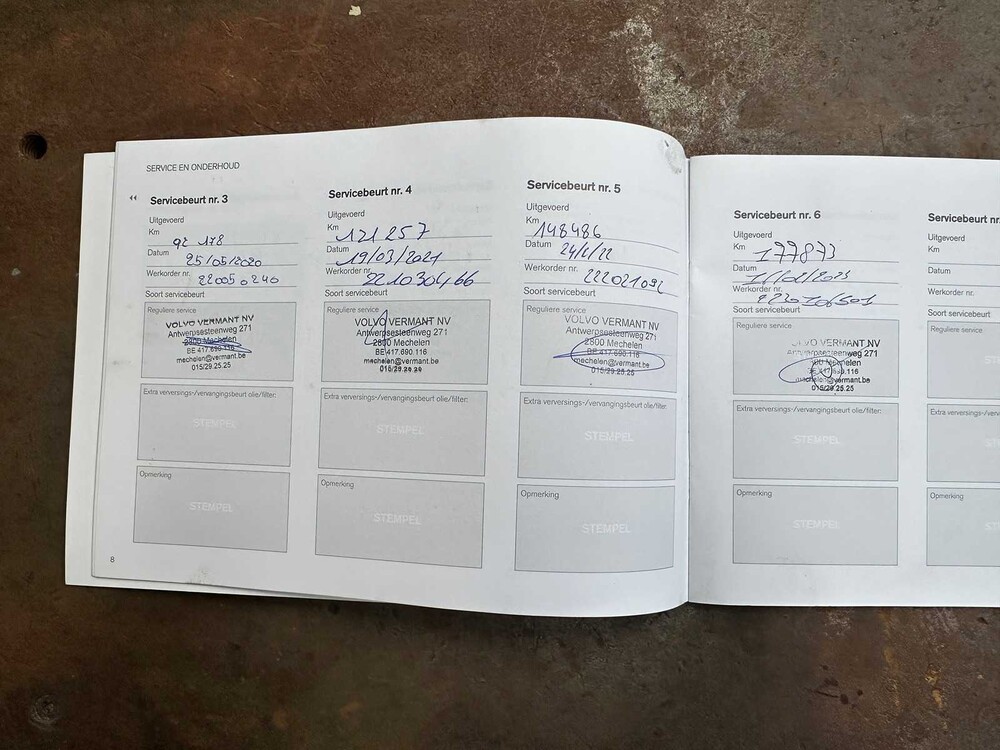 SERVICE EN ONDERHOUD
Servicebeurt nr. 3
Uitgevoerd
Km 92 178
Datum 25/05/2020
Werkorder nr. 22005 0240
Soort servicebeurt
Reguliere service
VOLVO VERMANT NV
Antwerpsesteenweg 271
2800 Mechelen
BE 417.690.116
mechelen@vermant.be
015/29.25.25
Extra verversings-/vervangingsbeurt olie/filter:
STEMPEL
Opmerking
STEMPEL
8
Servicebeurt nr. 4
Uitgevoerd
Km 121 257
Datum 19/03/2021
Werkorder nr. 2210304166
Soort servicebeurt
Reguliere service
VOLVO VERMANT NV
Antwerpsesteenweg 271
2800 Mechelen
BE 417.690.116
mechelen@vermant.be
015/29.25.25
Extra verversings-/vervangingsbeurt olie/filter:
STEMPEL
Opmerking
STEMPEL
Servicebeurt nr. 5
Uitgevoerd
Km 148486
Datum
Werkorder nr.
Soort servicebeurt
Reguliere service
VOLVO VERMANT NV
Antwerpsesteenweg 271
2800 Mechelen
BE 417.690.116
mechelen@vermant.be
015/29.25.25
Extra verversings-/vervangingsbeurt olie/filter:
STEMPEL
Opmerking
STEMPEL
Servicebeurt nr. 6
Uitgevoerd
Km 177873
Datum
Werkorder nr.
Soort servicebeurt
Reguliere service
VOLVO VERMANT NV
Antwerpsesteenweg 271
Mechelen
mechelen@vermant.be
015/29.25.25
Extra verversings-/vervangingsbeurt olie/filter:
STEMPEL
Opmerking
STEMPEL
Servicebeurt nr.
Uitgevoerd
Km
Datum
Werkorder nr.
Soort servicebeurt
Reguliere service
Extra verversings-/
Opmerking